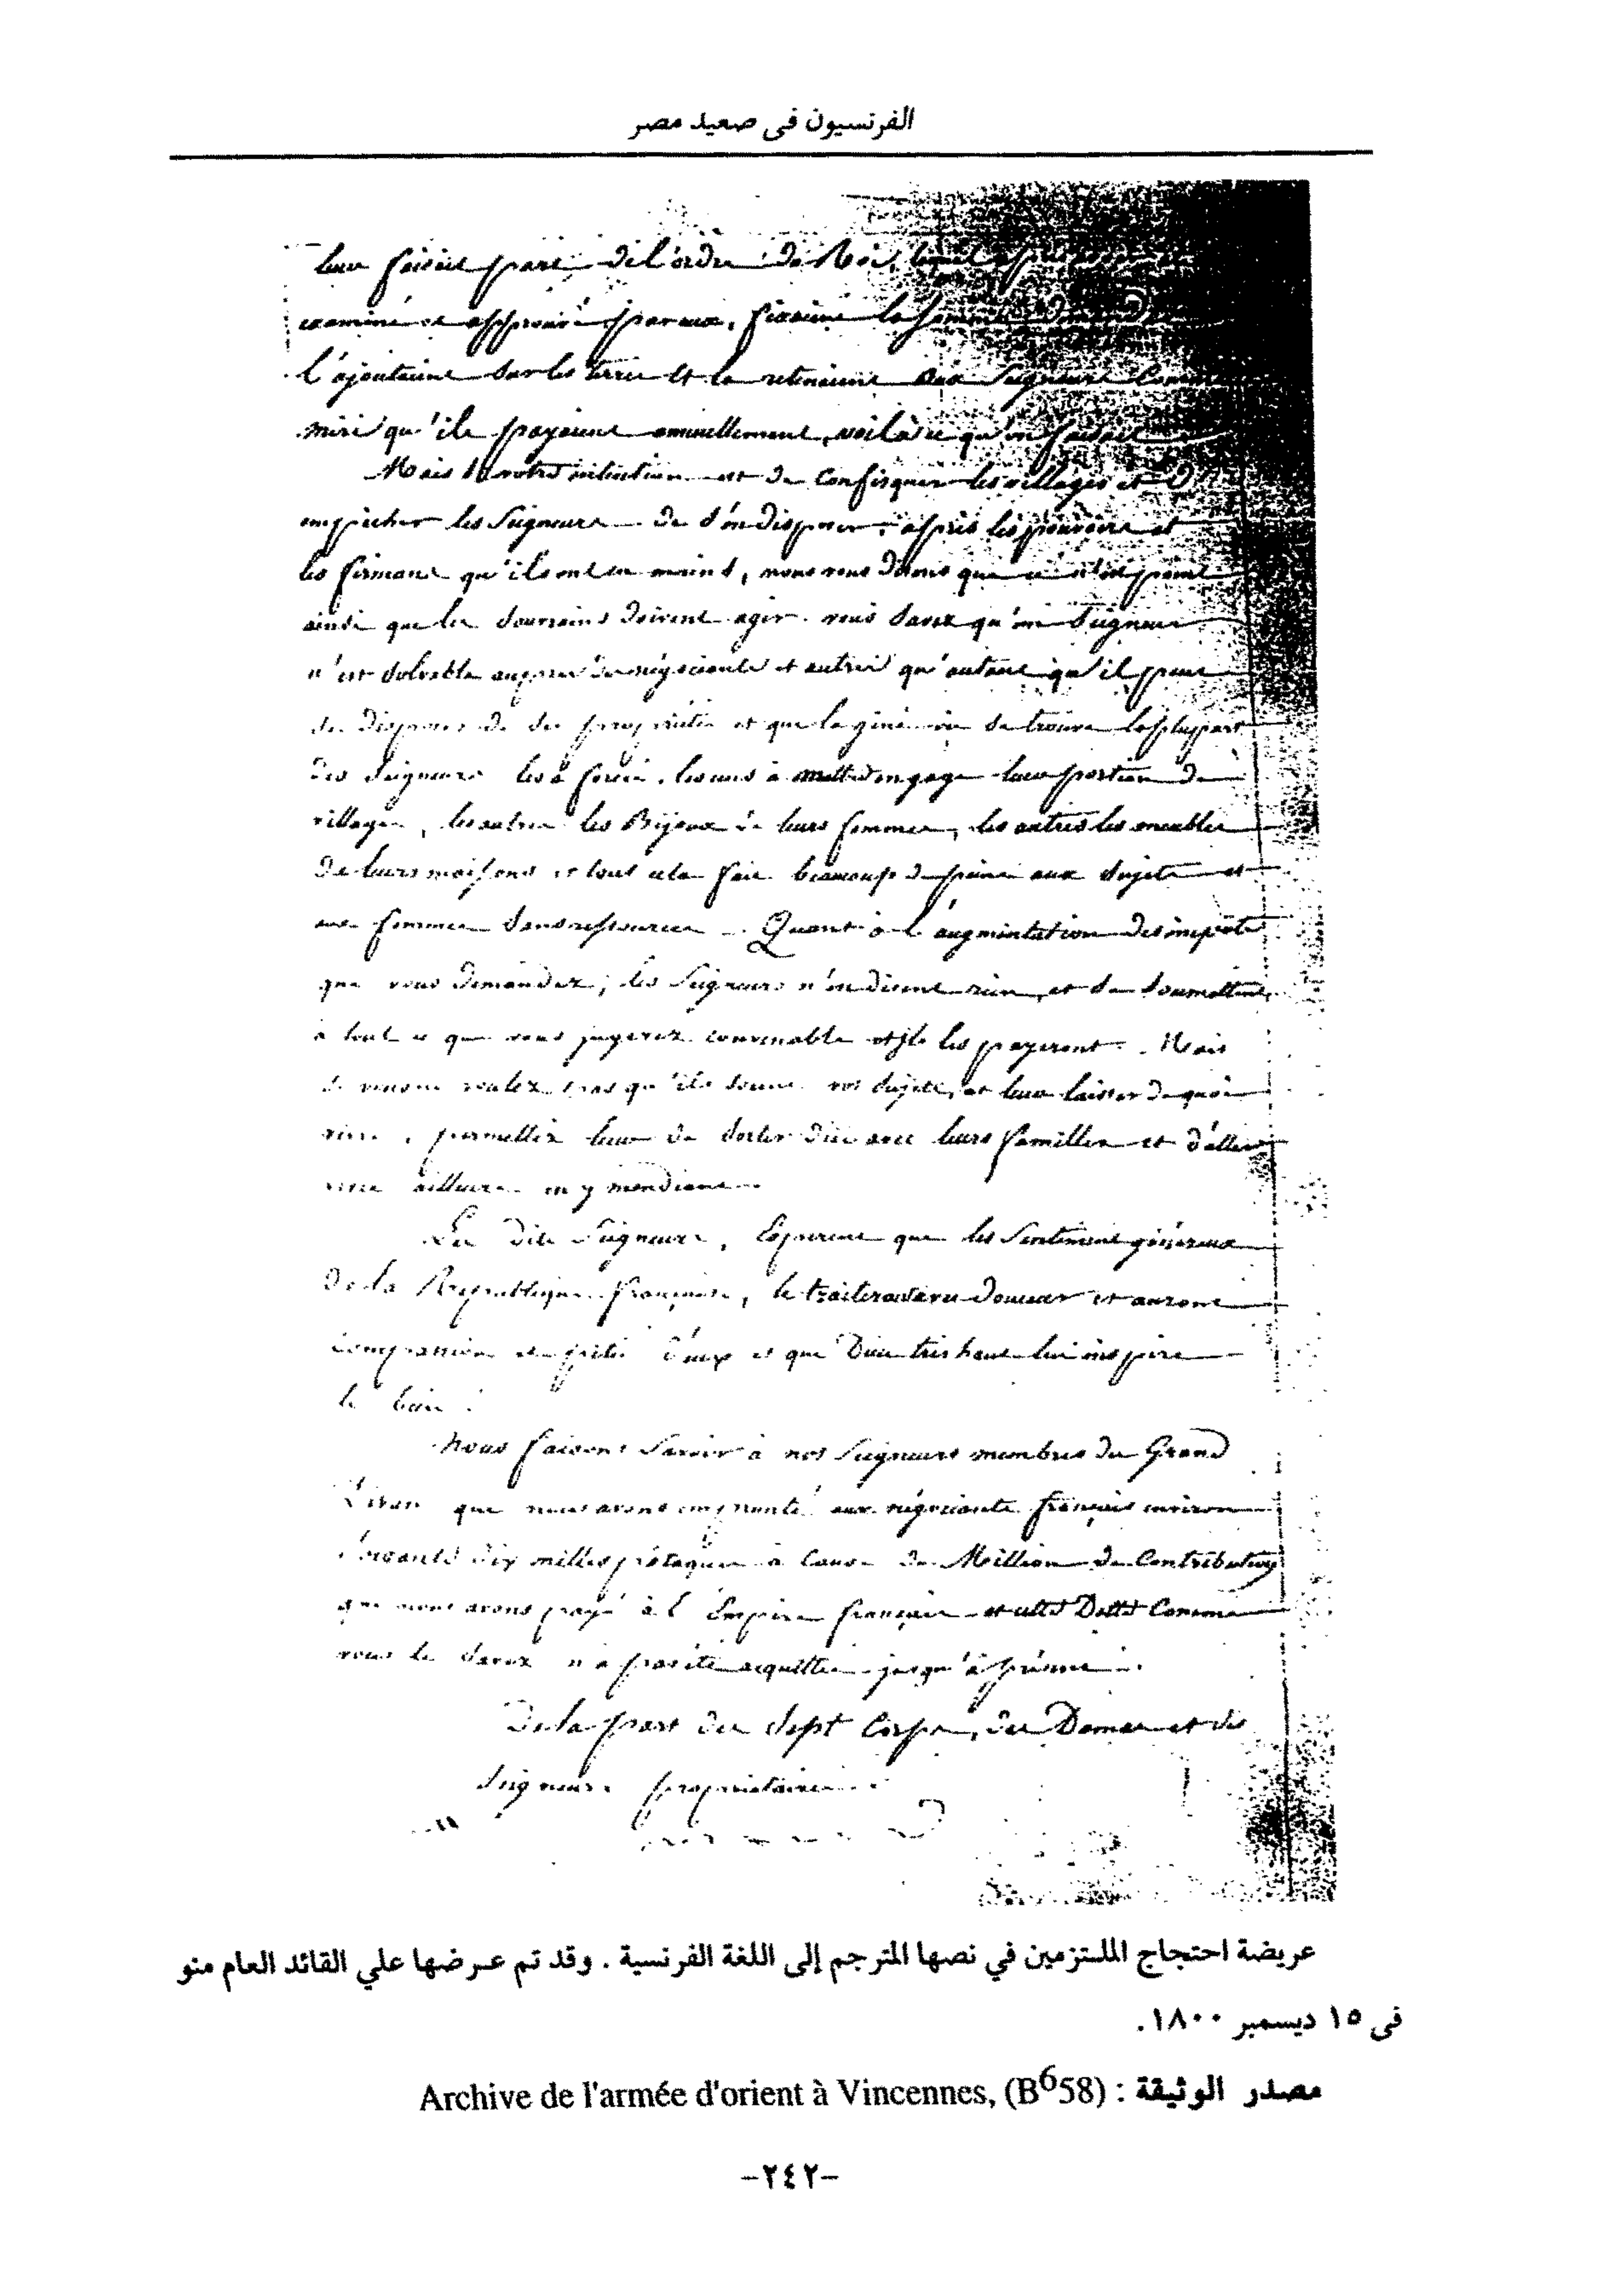 الفرنسيون فى صعيد مصر
leur faisait part de l'ordre du Roi, lequel
examiné et approuvé par eux, fixaient la somme
l'ajoutaient sur les terres et la retenaient aux Seigneurs Comme
miri qu'ils payaient annuellement, voilà ce qu'on faisait
Mais si votre intention est de confisquer les villages et d'
empêcher les Seigneurs de d'en disposer, après les pouvoirs et
les firmans qu'ils ont en mains, nous vous dirons que ce n'est point
ainsi que les Souverains doivent agir. vous savez qu'un Seigneur
n'est solvable auprès des négociants et autres qu'autant qu'il peut
de disposer de ses propriétés et que la gêne où se trouve la pluspart
des Seigneurs les a forcés, les uns à mettre en gage leur portion de
villages, les autres les Bijoux de leurs femmes, les autres les meubles
de leurs maisons et tout cela fait beaucoup de peine aux sujets et
aux femmes sans ressources. Quant à l'augmentation des impôts
que vous demandez, les Seigneurs n'en disent rien, et se soumettent
à tout ce que vous jugerez convenable et ils les payeront. Mais
si vous ne voulez pas qu'ils soient vos sujets, et leur laisser de quoi
vivre, permettez leur de sortir d'ici avec leurs familles et d'aller
vivre ailleurs en y mendiant.
Les dits Seigneurs, Espèrent que les Sentiments généreux
de la République française, le traitera avec douceur et auront
compassion et pitié d'eux et que Dieu très haut lui inspire
le bien.
Nous faisons Savoir à nos Seigneurs membres du Grand
Divan que nous avons emprunté aux négociants français environ
soixante dix milles pataques à cause du Million de Contributions
que nous avons payé à l'Empire français et cette Dette Comme
vous le savez n'a pas été acquittée jusqu'à présent.
De la part des sept Corps, des Dames et des
Seigneurs propriétaires.
عريضة احتجاج الملتزمين في نصها المترجم إلى اللغة الفرنسية . وقد تم عرضها علي القائد العام منو
فى ١٥ ديسمبر ١٨٠٠.
مصدر الوثيقة : Archive de l'armée d'orient à Vincennes, (B⁶58)
-٢٤٢-